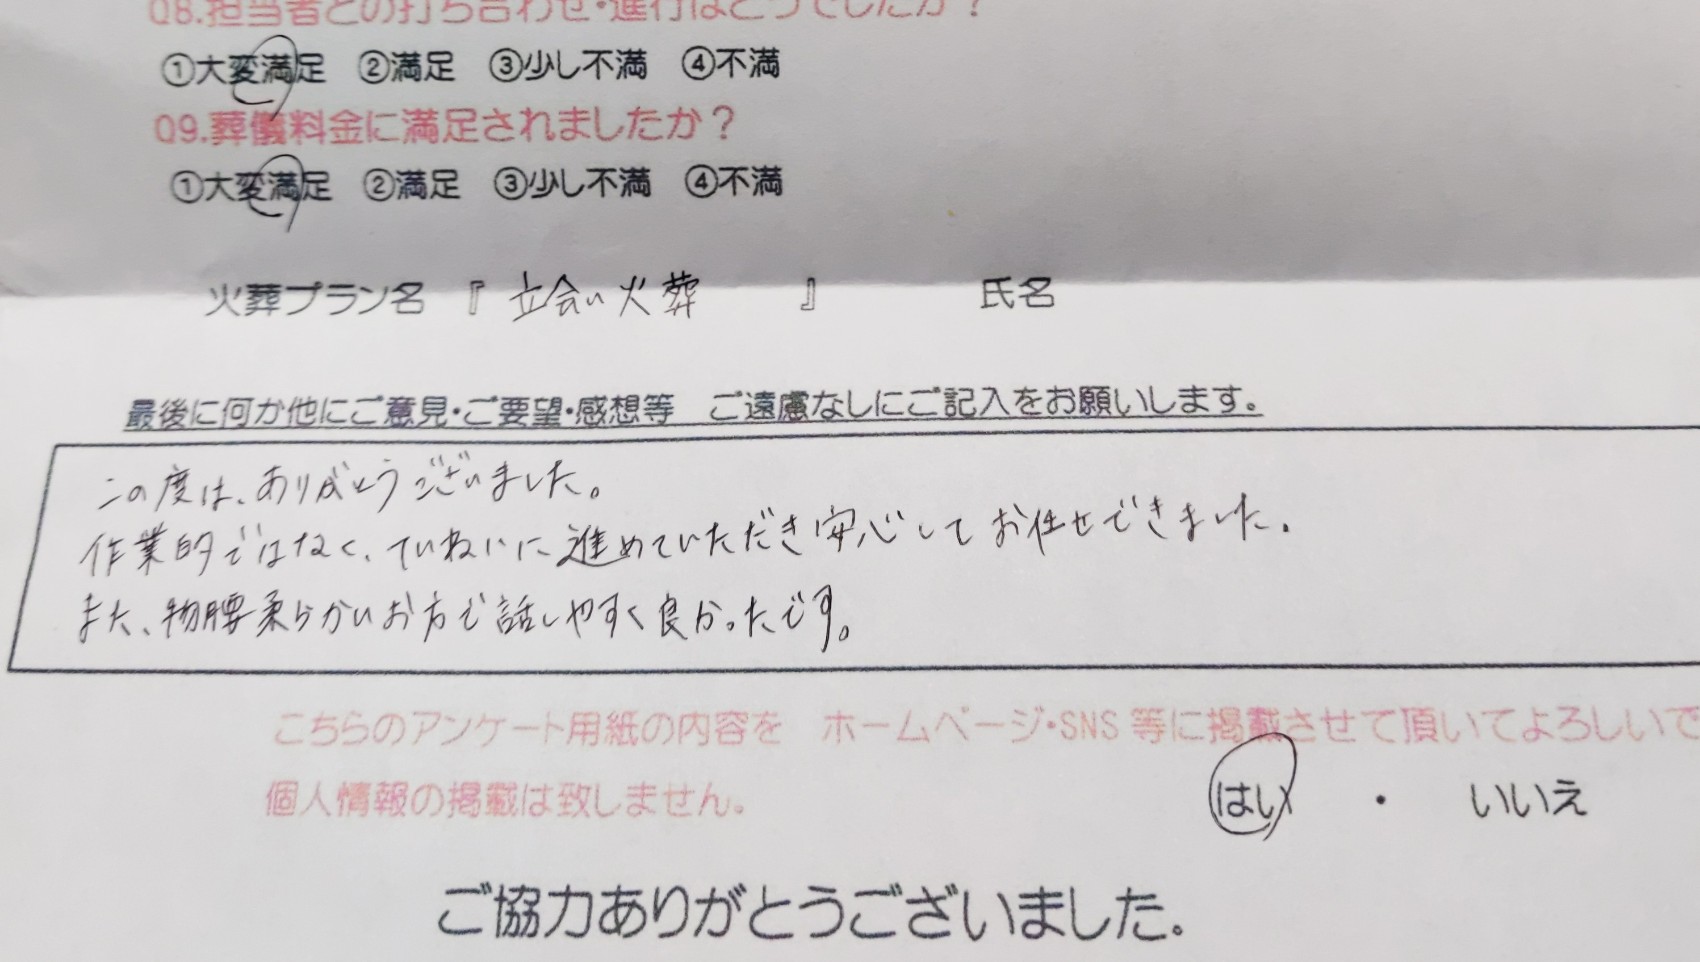 Q8.担当者との打ち合わせ・進行はどうでしたか？
①大変満足　②満足　③少し不満　④不満
Q9.葬儀料金に満足されましたか？
①大変満足　②満足　③少し不満　④不満
火葬プラン名『立会い火葬』　氏名
最後に何か他にご意見・ご要望・感想等　ご遠慮なしにご記入をお願いします。
この度は、ありがとうございました。
作業的ではなく、ていねいに進めていただき安心してお任せできました。
また、物腰柔らかいお方で話しやすく良かったです。
こちらのアンケート用紙の内容を　ホームページ・SNS等に掲載させて頂いてよろしいで
個人情報の掲載は致しません。　はい・いいえ
ご協力ありがとうございました。